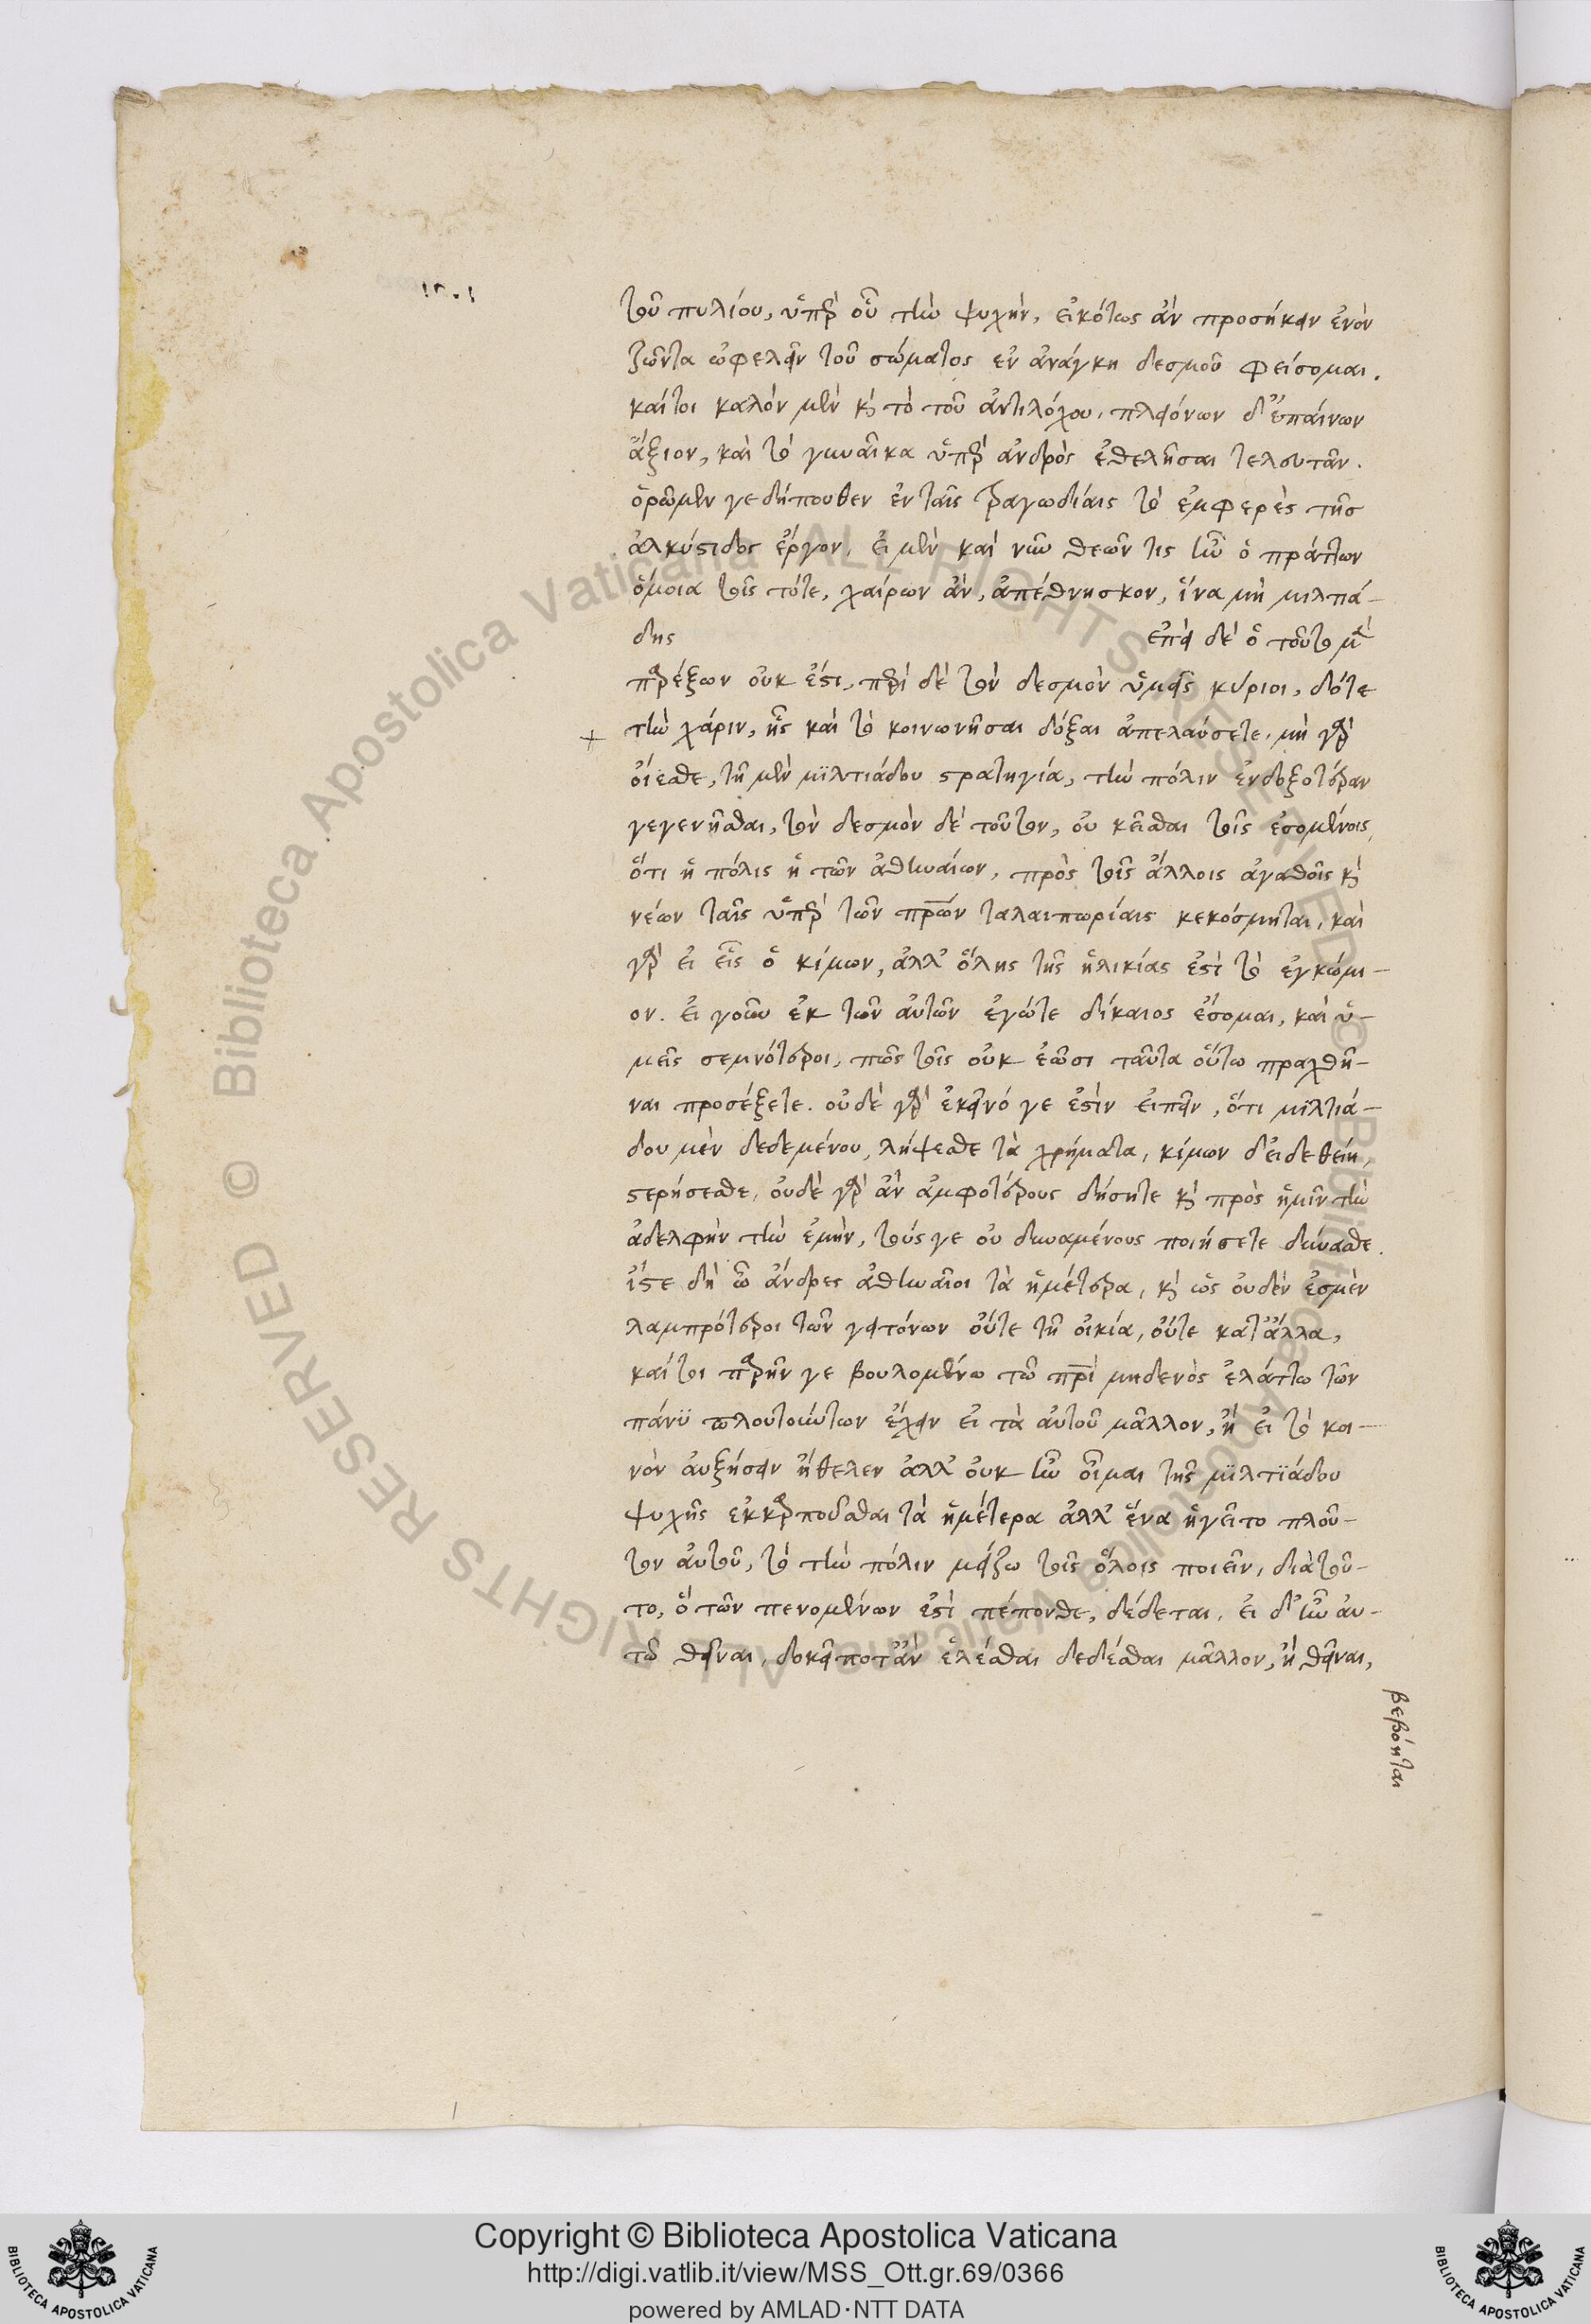 τοῦ πυλίου, ὑπὲρ οὗ τὴν ψυχήν, εἰκότως ἂν προσήκειν ἐνὸν
ζῶντα ὠφελεῖν τοῦ σώματος ἐν ἀνάγκη δεσμοῦ φείσομαι.
καίτοι καλὸν μὲν κὶ τὸ τοῦ ἀντιλόχου, πλειόνων δ' ἐπαίνων
ἄξιον, καὶ τὸ γυναῖκα ὑπὲρ ἀνδρὸς ἐθελῆσαι τελευτᾶν.
ὁρῶμεν γε δήπουθεν ἐν ταῖς τραγωδίαις τὸ ἐμφερὲς τῆσ
ἀλκήστιδος ἔργον, εἰ μὲν καὶ νῦν θεῶν τις ἦν ὁ πράττων
ὅμοια τοῖς τότε, χαίρων ἂν, ἀπέθνησκον, ἵνα μὴ μιλτιά-
δης ἐπεὶ δὲ ὁ τοῦτο μὲ
παρέξων οὐκ ἔστι, περὶ δὲ τὸν δεσμὸν ὑμεῖς κύριοι, δότε
+ τὴν χάριν, ἧς καὶ τὸ κοινωνῆσαι δόξαι ἀπελαύσετε. μὴ γὰρ
οἴεσθε, τῆ μὲν μϊλτιάδου στρατηγία, τὴν πόλιν ἐνδοξοτέραν
γεγενῆσθαι, τὸν δεσμὸν δὲ τοῦτον, οὐ κεῖσθαι τοῖς ἐσομένοις,
ὅτι ἡ πόλις ἡ τῶν ἀθηναίων, πρὸς τοῖς ἄλλοις ἀγαθοῖς κὶ
νέων ταῖς ὑπὲρ τῶν πρῶν ταλαιπωρίαις κεκόσμηται, καὶ
γὰρ εἰ εἷς ὁ κίμων, ἀλλ' ὅλης τῆς ἡλικίας ἐστὶ τὸ ἐγκώμι-
ον. εἰ γοῦν ἐκ τῶν αὐτῶν ἐγώτε δίκαιος ἔσομαι, καὶ ὑ-
μεῖς σεμνότεροι, πῶς τοῖς οὐκ ἐῶσι ταῦτα οὕτω πραχθῆ-
ναι προσέξετε. οὐδὲ γὰρ ἐκεῖνό γε ἐστὶν εἰπεῖν, ὅτι μιλτιά-
δου μὲν δεδεμένου, λήψεσθε τὰ χρήματα, κίμων δ' εἰ δεθείη,
στερήσεσθε, οὐδὲ γὰρ ἂν ἀμφοτέρους δήσητε κὶ πρὸς ἡμῖν τὴν
ἀδελφὴν τὴν ἐμὴν, τούς γε οὐ δυναμένους ποιήσετε δύνασθε.
ἴστε δὴ ὦ ἄνδρες ἀθηναῖοι τὰ ἡμέτερα, κὶ ὡς οὐδὲν ἐσμὲν
λαμπρότεροι τῶν γειτόνων οὔτε τῆ οἰκία, οὔτε κατ' ἄλλα,
καίτοι παρῆν γε βουλομένω τῶ πρὶ μηδενὸς ἐλάττω τῶν
πάνϋ πλουτούντων ἔχειν εἰ τὰ αὐτοῦ μᾶλλον, ἢ εἰ τὸ κοι-
νὸν αὐξήσειν ἤθελεν ἀλλ' οὐκ ἦν οἶμαι τῆς μϊλτϊάδου
ψυχῆς ἐκκαρποῦσθαι τὰ ἡμέτερα ἀλλ' ἕνα ἡγεῖτο πλοῦ-
τον αὐτοῦ, τὸ τὴν πόλιν μείζω τοῖς ὅλοις ποιεῖν, διὰ τοῦ-
το, ὃ τῶν πενομένων ἐστὶ πέπονθε, δέδεται, εἰ δ' ἦν αὐ-
τῶ θεῖναι, δοκεῖ ποτ' ἂν ἑλέσθαι δεδέσθαι μᾶλλον, ἢ θεῖναι,
βεβόηται